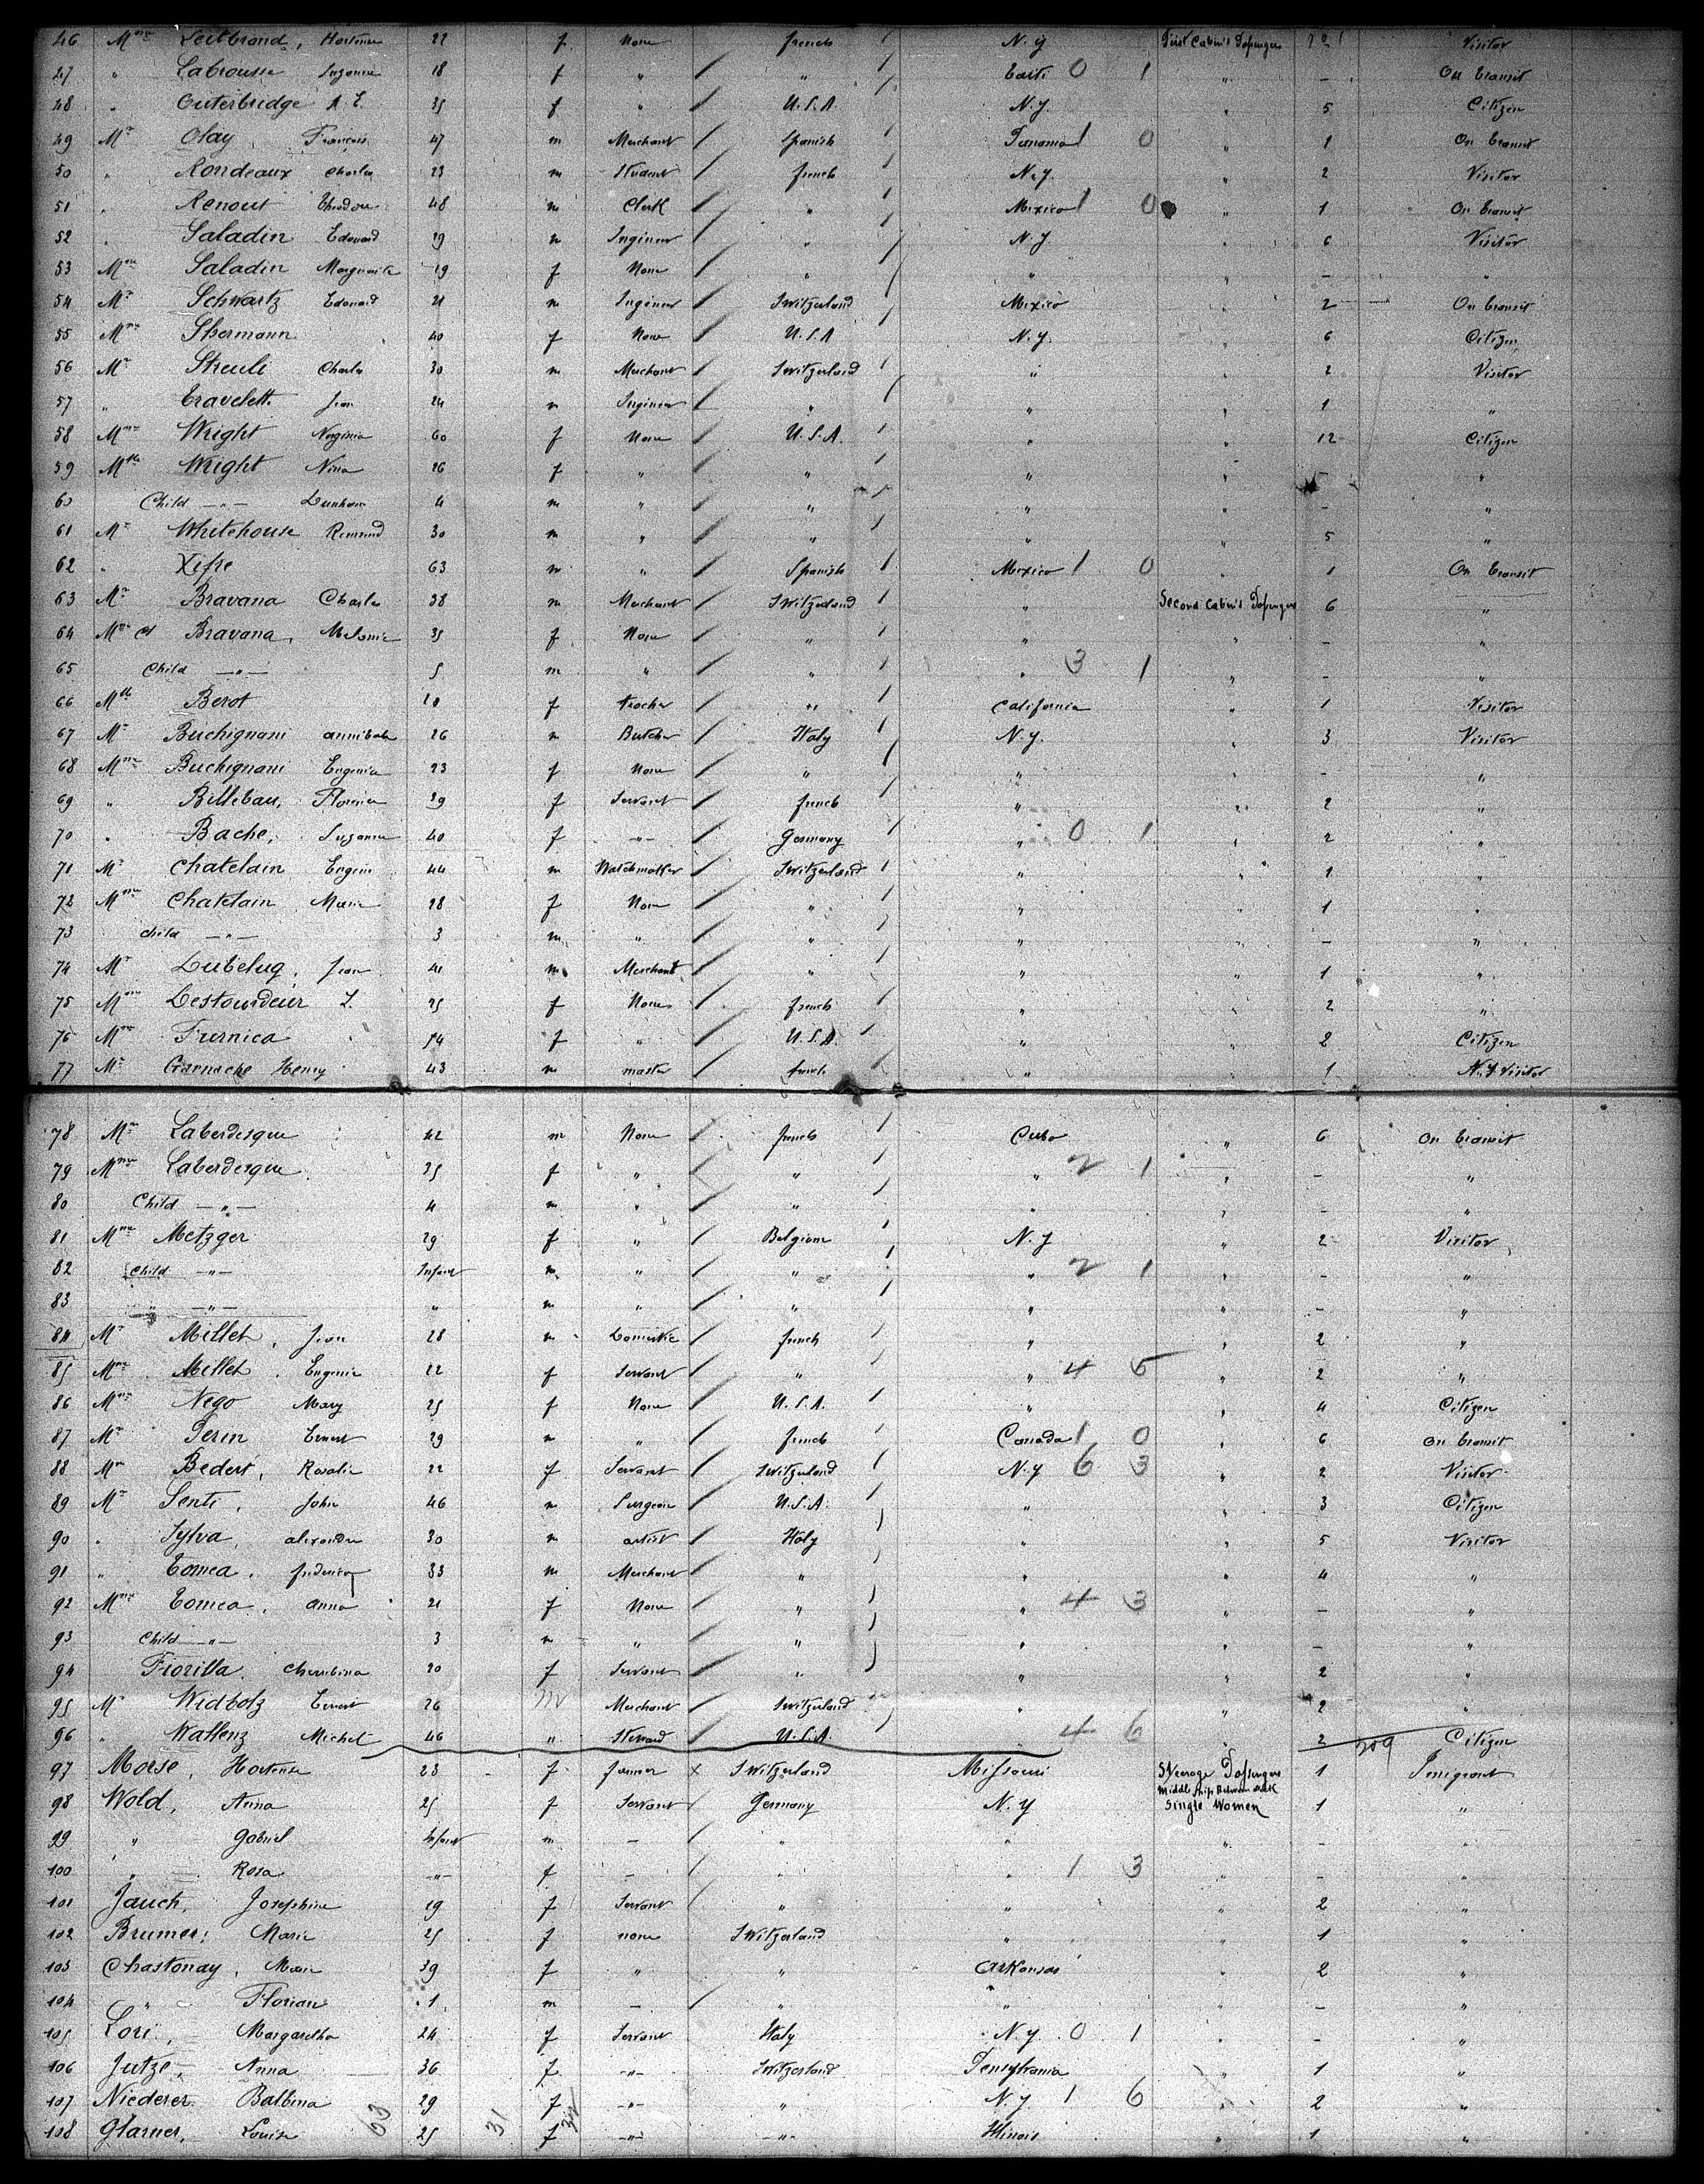 46 Mme Leitbrand, Hortense 22 f None french N.Y First Cabin's Passengers Visitor
47 " Labrousse Suzanne 18 f " " Haiti 0 1 " - On transit
48 " Outerbridge A. E. 35 f " U.S.A. N.Y. " 5 Citizen
49 Mr Olay François 47 m Merchant Spanish Panama 1 0 " 1 On transit
50 " Rondeaux Charles 23 m Student french N.Y. " 2 Visitor
51 " Renout Theodore 48 m Clerk " Mexico 1 0 " 1 On transit
52 " Saladin Edouard 29 m Ingineer " N.Y " 6 Visitor
53 Mme Saladin Marguerite 19 f None " " " - "
54 Mr Schwartz Edouard 21 m Ingineer Switzerland Mexico " 2 On transit
55 Mme Shermann 40 f None U.S.A N.Y. " 6 Citizen
56 Mr Streuli Charles 30 m Merchant Switzerland " " 2 Visitor
57 " Travelett Jean 24 m Ingineer " " " 1 "
58 Mme Wright Virginia 60 f None U.S.A. " " 12 Citizen
59 Mlle Wright Nina 26 f " " " " - "
60 Child -"- Dunham 4 m " " " " - "
61 Mr Whitehouse Remsend 30 m " " " " 5 "
62 " Xifre 63 m " Spanish Mexico 1 0 " 1 On transit
63 Mr Bravana Charles 38 m Merchant Switzerland " Second Cabin's Passengers 6 "
64 Mme Bravana, Melanie 35 f None " " " - "
65 Child -"- 5 m " " " 3 1 " - "
66 Mlle Berot f teacher " California " 1 Visitor
67 Mr Buchignani annibale 26 m Butcher Italy N.Y. " 3 Visitor
68 Mme Buchignani Eugenia 23 f None " " " - "
69 " Billebau, Florence 29 f Servant french " " 2 "
70 " Bache, Suzanne 40 f -"- Germany " 0 1 " 2 "
71 Mr Chatelain Eugene 44 m Watchmaker Switzerland " " 1 "
72 Mme Chatelain Marie 28 f None " " " 1 "
73 child -"- 3 m " " " " - "
74 Mr Dubeluq, Jean 41 m Merchant " " " 1 "
75 Mme Destourdeur L. 25 f None french " " 2 "
76 Mme Furnica 54 f " U.S.A. " " 2 Citizen
77 Mr Garnache Henry 43 m master french " " 1 N.Y Visitor
78 Mr Laberdesque 42 m None french Cuba " 6 On transit
79 Mme Laberdesque 35 f " " " 2 1 " - "
80 Child -"- 4 m " " " " - "
81 Mme Metzger 29 f " Belgium N.Y " 2 Visitor
82 Child -"- Infant m " " " 2 1 " - "
83 " -"- " m " " " " - "
84 Mr Millet, Jean 28 m Domestic french " " 2 "
85 Mme Millet, Eugenie 22 f Servant " " 4 5 " 2 "
86 Mme Nego Mary 25 f None U.S.A. " " 4 Citizen
87 Mr Perin Ernest 29 m " french Canada 1 0 " 6 On transit
88 Mme Bedert, Rosalie 22 f Servant Switzerland N.Y 6 3 " 2 Visitor
89 Mr Senti, John 46 m Surgeon U.S.A. " " 3 Citizen
90 " Sylva, alexandre 30 m artist Italy " " 5 Visitor
91 " Tomea, frederico 33 m Merchant " " " 4 "
92 Mme Tomea, anna 21 f None " " 4 3 " - "
93 Child -"- 3 m " " " " - "
94 Fiorilla, Cherubina 20 f Servant " " " 2 "
95 Mr Widbolz Ernest 26 m Merchant Switzerland " " 2 "
96 " Wallenz Michel 46 " Steward U.S.A. " 4 6 " 2 209 Citizen
97 Morse, Hortense 23 f farmer x Switzerland Missouri Steerage Passengers 1 Imigrant
Middle Ship Between deck
98 Wold, Anna 25 f Servant Germany N.Y Single Women 1 "
99 " Gabriel Infant m - " " " - "
100 " Rosa -"- f - " " 1 3 " - "
101 Jauch, Josephine 19 f Servant " " " 2 "
102 Brumer, Marie 25 f none Switzerland " " 1 "
103 Chastonay, Marie 39 f " " Arkansas " 2 "
104 " Florian 1 m - " " " - "
105 Lori, Margaretha 24 f Servant Italy N.Y. 0 1 " - "
106 Jutze, Anna 36 f -"- Switzerland Pensylvania " 1 "
107 Niederer Balbina 29 f -"- " N.Y 1 6 " 2 "
108 Glarner, Louise 25 f -"- -"- Illinois " 1 "
63 31 32